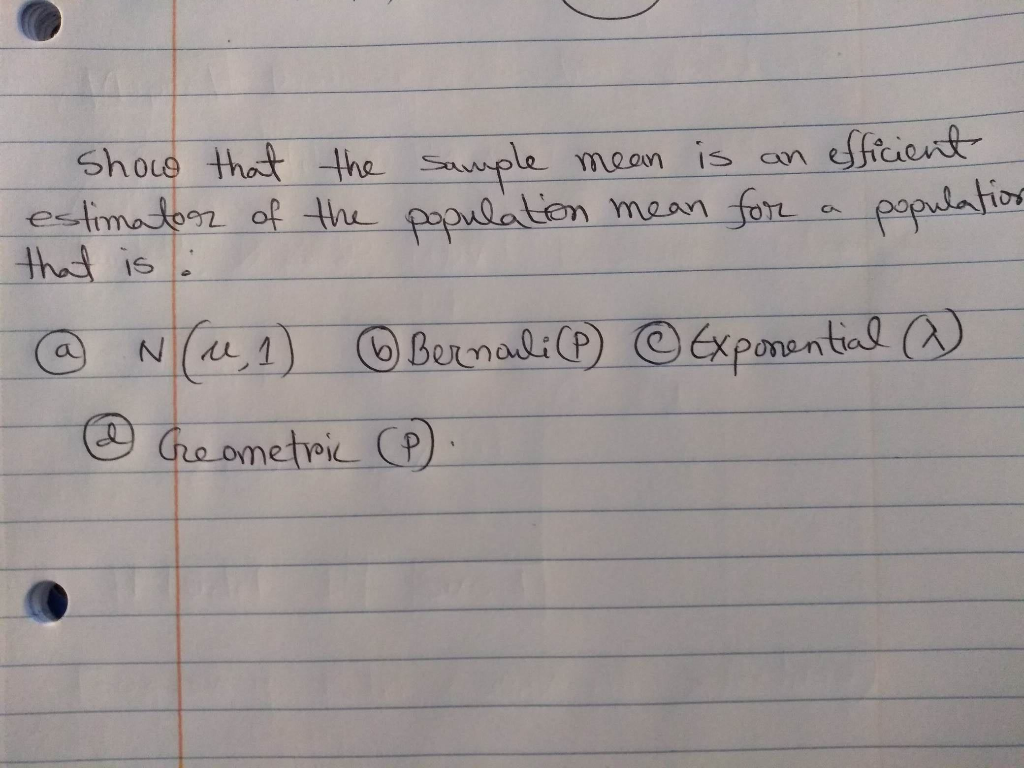 Show that the sample mean is an efficient
estimator of the population mean for a population
that is :
(a) N(μ,1) (b) Bernouli(P) (c) Exponential (λ)
(d) Geometric (P).